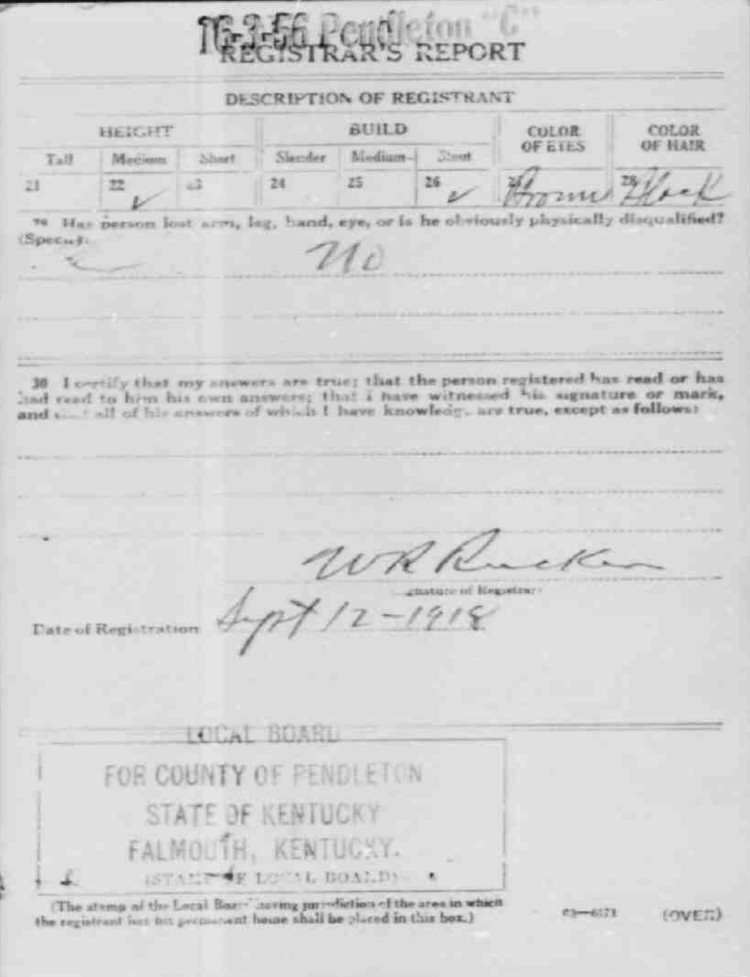 16-3-56 Pendleton "C"
REGISTRAR'S REPORT
DESCRIPTION OF REGISTRANT
HEIGHT BUILD COLOR OF EYES COLOR OF HAIR
Tall Medium Short Slender Medium Stout
21 22 ✓ 23 24 25 26 ✓ 27 Brown 28 Black
29 Has person lost arm, leg, hand, eye, or is he obviously physically disqualified?
(Specify).
No
30 I certify that my answers are true; that the person registered has read or has
had read to him his own answers; that I have witnessed his signature or mark,
and that all of his answers of which I have knowledge are true, except as follows:
W R Rucker
Signature of Registrar
Date of Registration Sept 12-1918
LOCAL BOARD
FOR COUNTY OF PENDLETON
STATE OF KENTUCKY
FALMOUTH, KENTUCKY.
(STAMP OF LOCAL BOARD)
(The stamp of the Local Board having jurisdiction of the area in which
the registrant has his permanent home shall be placed in this box.)
03—6171 (OVER)